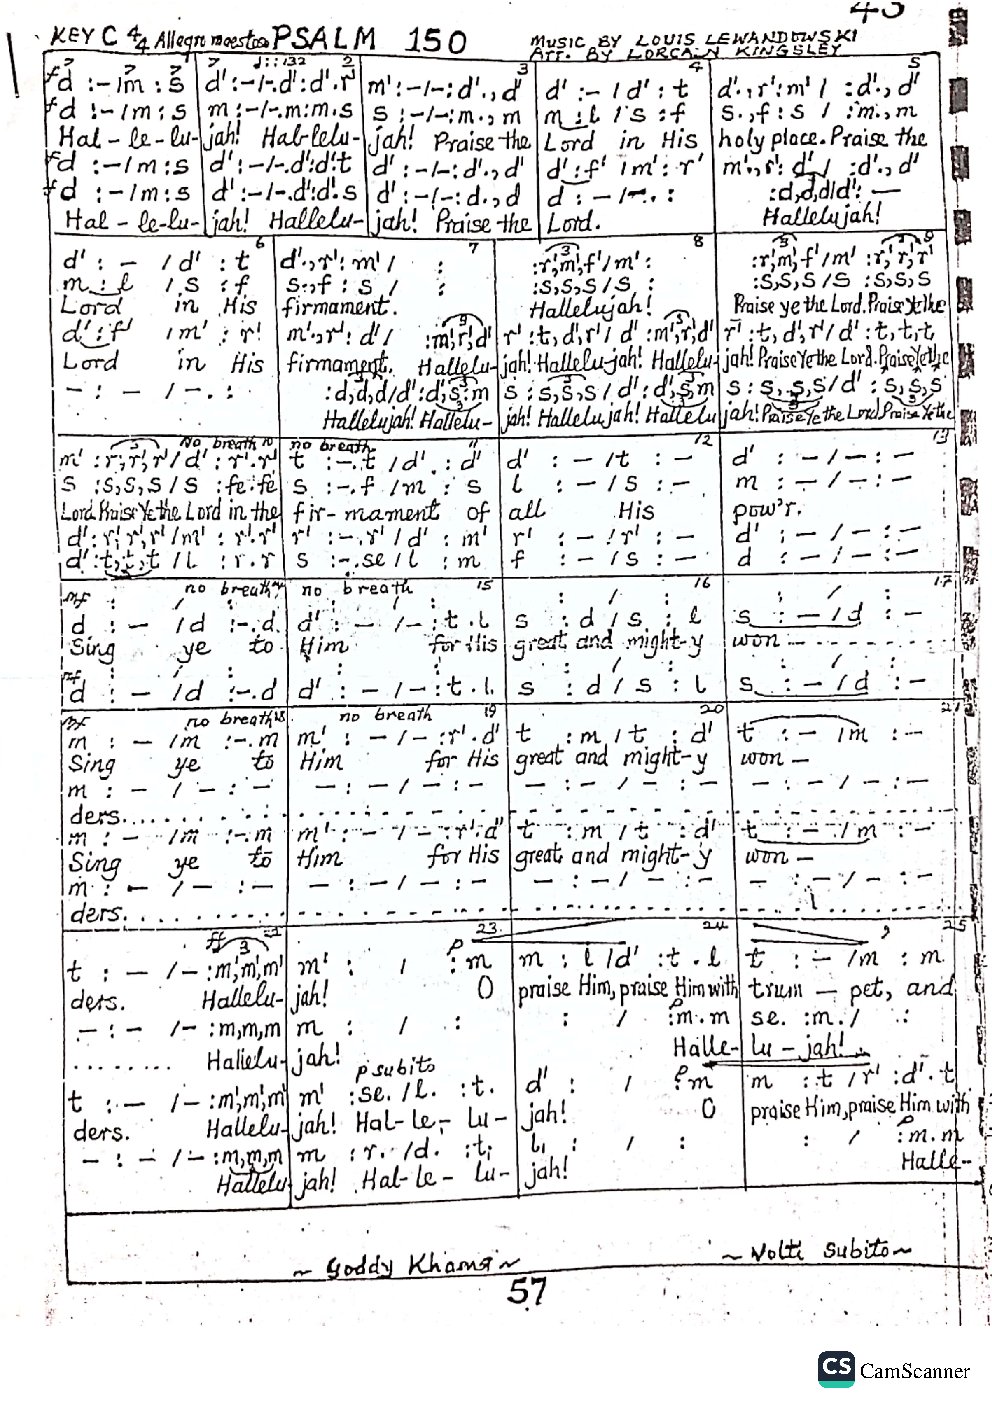 43
KEY C 4/4 Allegro maestoso PSALM 150 MUSIC BY LOUIS LEWANDOWSKI
♩::132 Arr. BY LORCAIN KINGSLEY
1 2 3 4 5
f d :-/m :s | d' :-/-.d':d'.r' | m' :-/-:d'.,d' | d' :-/d' :t | d'.,r':m' / :d'.,d'
f d :-/m :s | m :-/-.m:m.s | s :-/-:m.,m | m :l /s :f | s.,f :s / :m.,m
Hal-le-lu- | jah! Hal-lelu- | jah! Praise the | Lord in His | holy place. Praise the
f d :-/m :s | d' :-/-.d':d'.t | d' :-/-:d'.,d' | d' :f' /m' :r' | m'.,r':d' / :d'.,d'
f d :-/m :s | d' :-/-.d':d'.s | d' :-/-:d.,d | d :-/-. : | :d,d,d/d' :-
Hal-le-lu- | jah! Hallelu- | jah! Praise the | Lord. | Hallelujah!
6 7 8 9
d' :- /d' :t | d'.,r':m' / : | :r',m',f'/m' : | :r',m',f'/m' :r',r',r'
m :l /s :f | s.,f :s / : | :s,s,s/s : | :s,s,s/s :s,s,s
Lord in His | firmament. | Hallelujah! | Praise ye the Lord. Praise Ye the
d' :f' /m' :r' | m'.,r':d' / :m',r',d' | r' :t,d',r'/d' :m',r',d' | r' :t,d',r'/d' :t,t,t
Lord in His | firmament. Hallelu- | jah! Hallelujah! Hallelu- | jah! Praise Ye the Lord. Praise Ye the
- :- /-. : | :d,d,d/d' :d',s:m | s :s,s,s/d' :d',s,m | s :s,s,s/d' :s,s,s
Hallelujah! Hallelu- | jah! Hallelujah! Hallelu | jah! Praise Ye the Lord Praise Ye the
No breath 10 no breath 11 12 13
m' :r',r',r'/d' :r'.r' | t :-.t /d' :d' | d' :-/t :- | d' :-/-:-
s :s,s,s/s :fe.fe | s :-.f /m :s | l :-/s :- | m :-/-:-
Lord. Praise Ye the Lord in the | fir-mament of | all His | pow'r.
d' :r',r',r'/m' :r'.r' | r' :-.r'/d' :m' | r' :-/r' :- | d' :-/-:-
d' :t,t,t/l :r.r | s :-.se/l :m | f :-/s :- | d :-/-:-
no breath 14 no breath 15 16 17
mf : / : | : / : | : / : | : / :
d :-/d :-.d | d' :-/-:t.l | s :d/s :l | s :-/d :-
Sing ye to | Him for His | great and might-y | won
: / : | : / : | : / : | : / :
mf d :-/d :-.d | d' :-/-:t.l | s :d/s :l | s :-/d :-
no breath 18 no breath 19 20 21
mf m :-/m :-.m | m' :-/-:r'.d' | t :m/t :d' | t :-/m :-
Sing ye to | Him for His | great and might-y | won-
m :-/-:- | - :-/-:- | - :-/-:- | - :-/-:-
ders.
m :-/m :-.m | m' :-/-:r'.d' | t :m/t :d' | t :-/m :-
Sing ye to | Him for His | great and might-y | won-
m :-/-:- | - :-/-:- | - :-/-:- | - :-/-:-
ders.
ff 22 23 24 25
t :-/-:m',m',m' | m' : / p :m | m :l/d' :t.l | t :-/m :m
ders. Hallelu- | jah! O | praise Him, praise Him with | trum-pet, and
- :-/-:m,m,m | m : / : | : / p :m.m | se. :m./ :
Hallelu- | jah! | Halle- | lu-jah!
p subito
t :-/-:m',m',m' | m' :se./l. :t. | d' : / p :m | m :t/r' :d'.t
ders. Hallelu- | jah! Hal-le-lu- | jah! O | praise Him, praise Him with
- :-/-:m,m,m | m :r./d. :t, | l, : / : | : / p :m.m
Hallelu | jah! Hal-le-lu- | jah! | Halle-
~ Goddy Khams ~ ~ Volti Subito ~
57
CS CamScanner